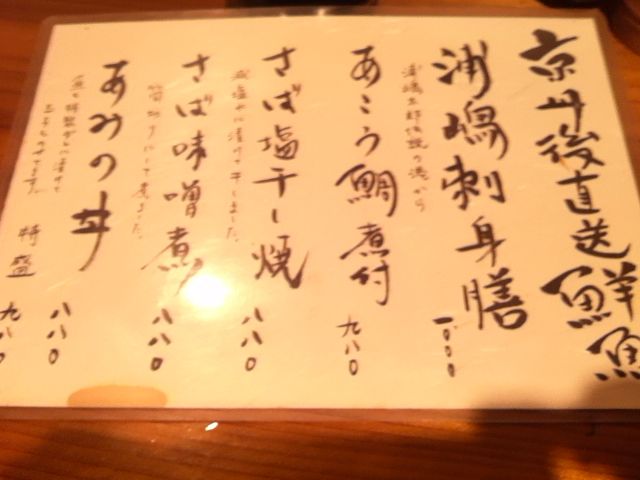 京丹後直送鮮魚
浦嶋刺身膳
一〇〇〇
浦嶋太郎伝説の港から
あこう鯛煮付
九八〇
さば塩干し焼
八八〇
減塩
に漬けて干しました。
さば味噌煮
八八〇
て煮ました。
あみの丼
八八〇
漬けて
玉子ものせてます。
特盛
九八〇